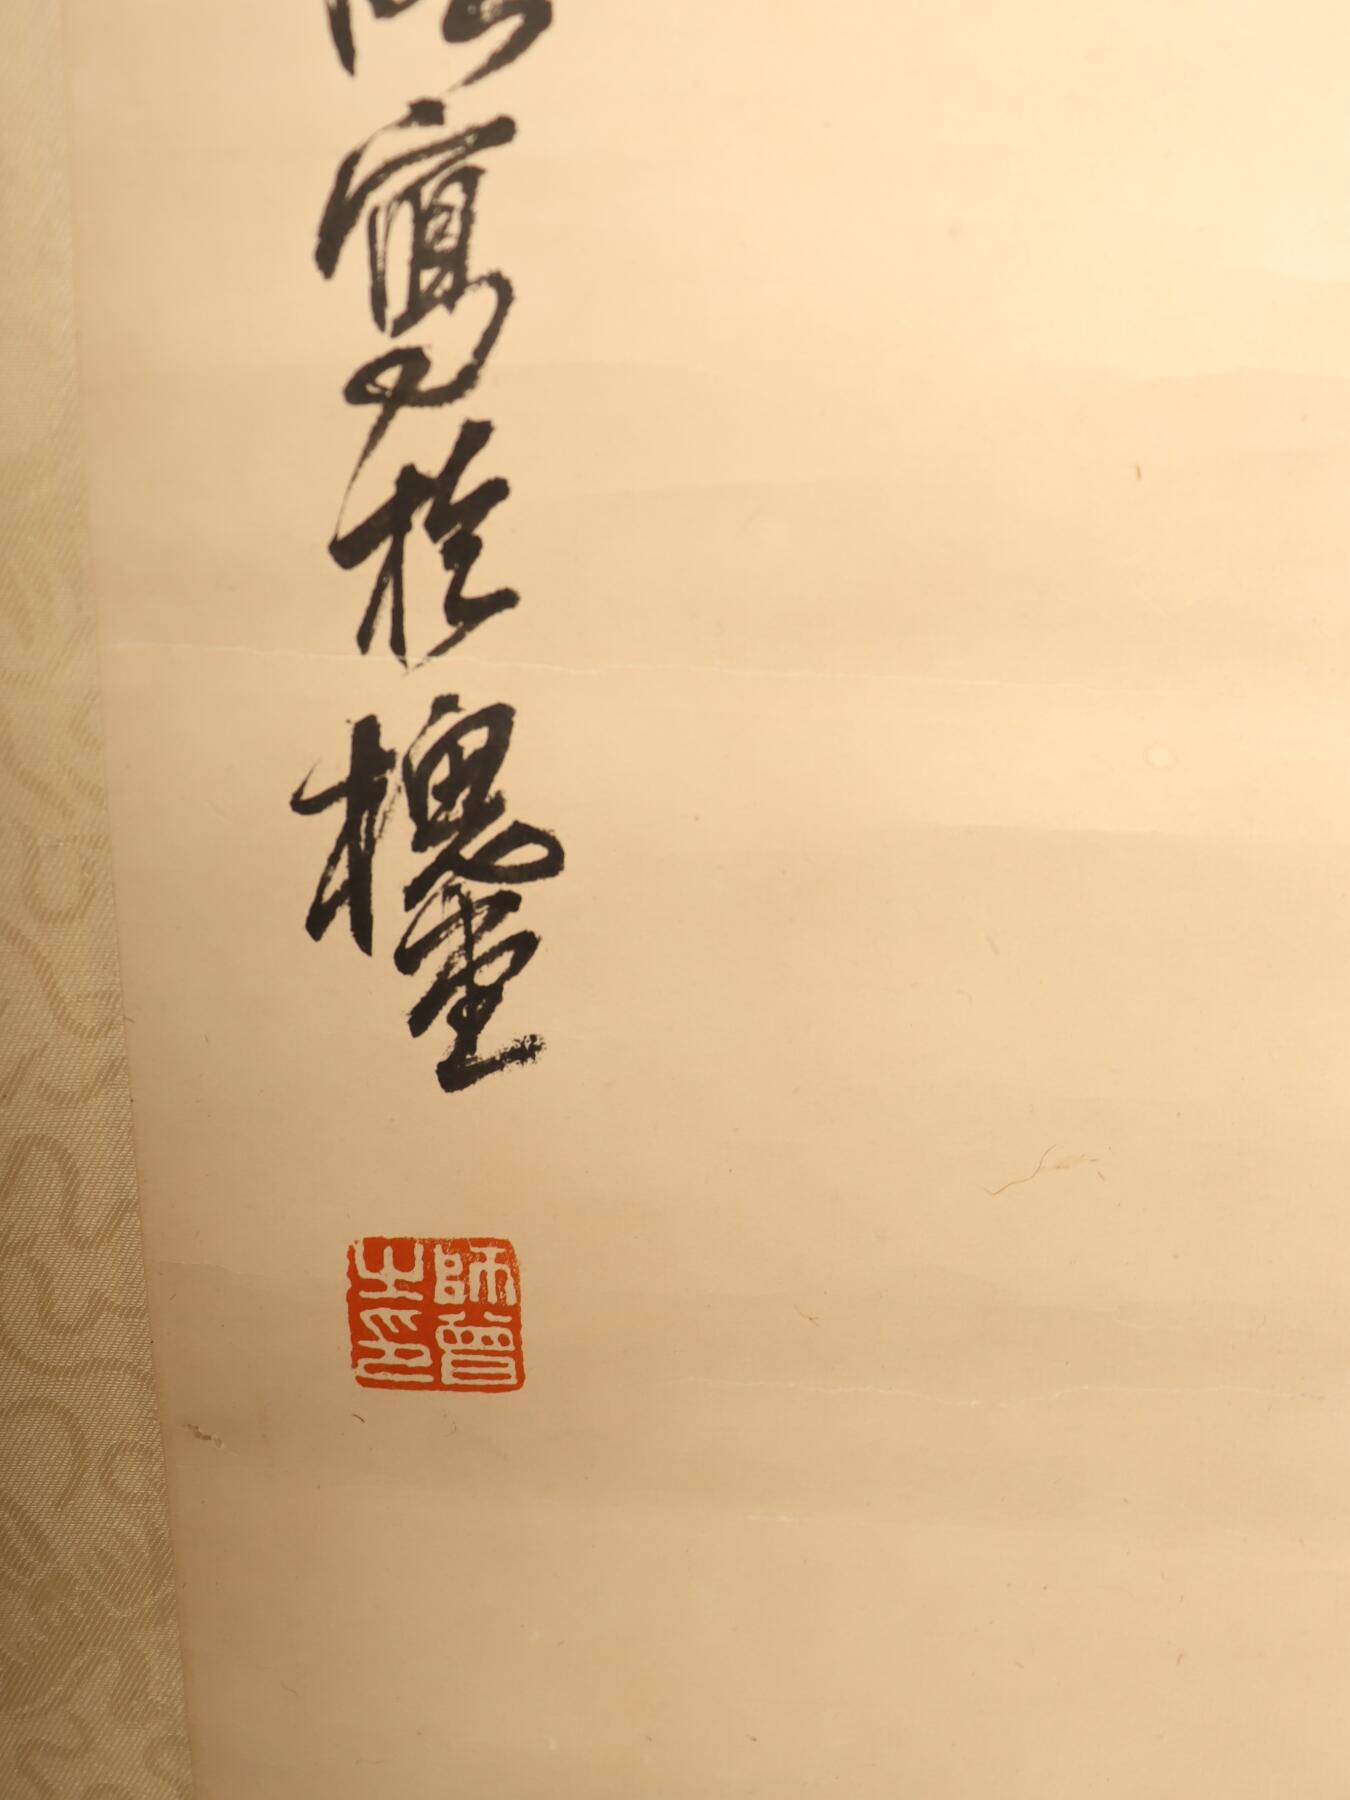 寫於槐堂
師曾之印